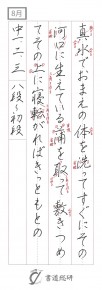 8月
真水でおまえの体を洗ってすぐにその
河口に生えている蒲を取って敷きつめ
てその上に寝転がればきっともとの
中一二三 八段〜初段
書道総研